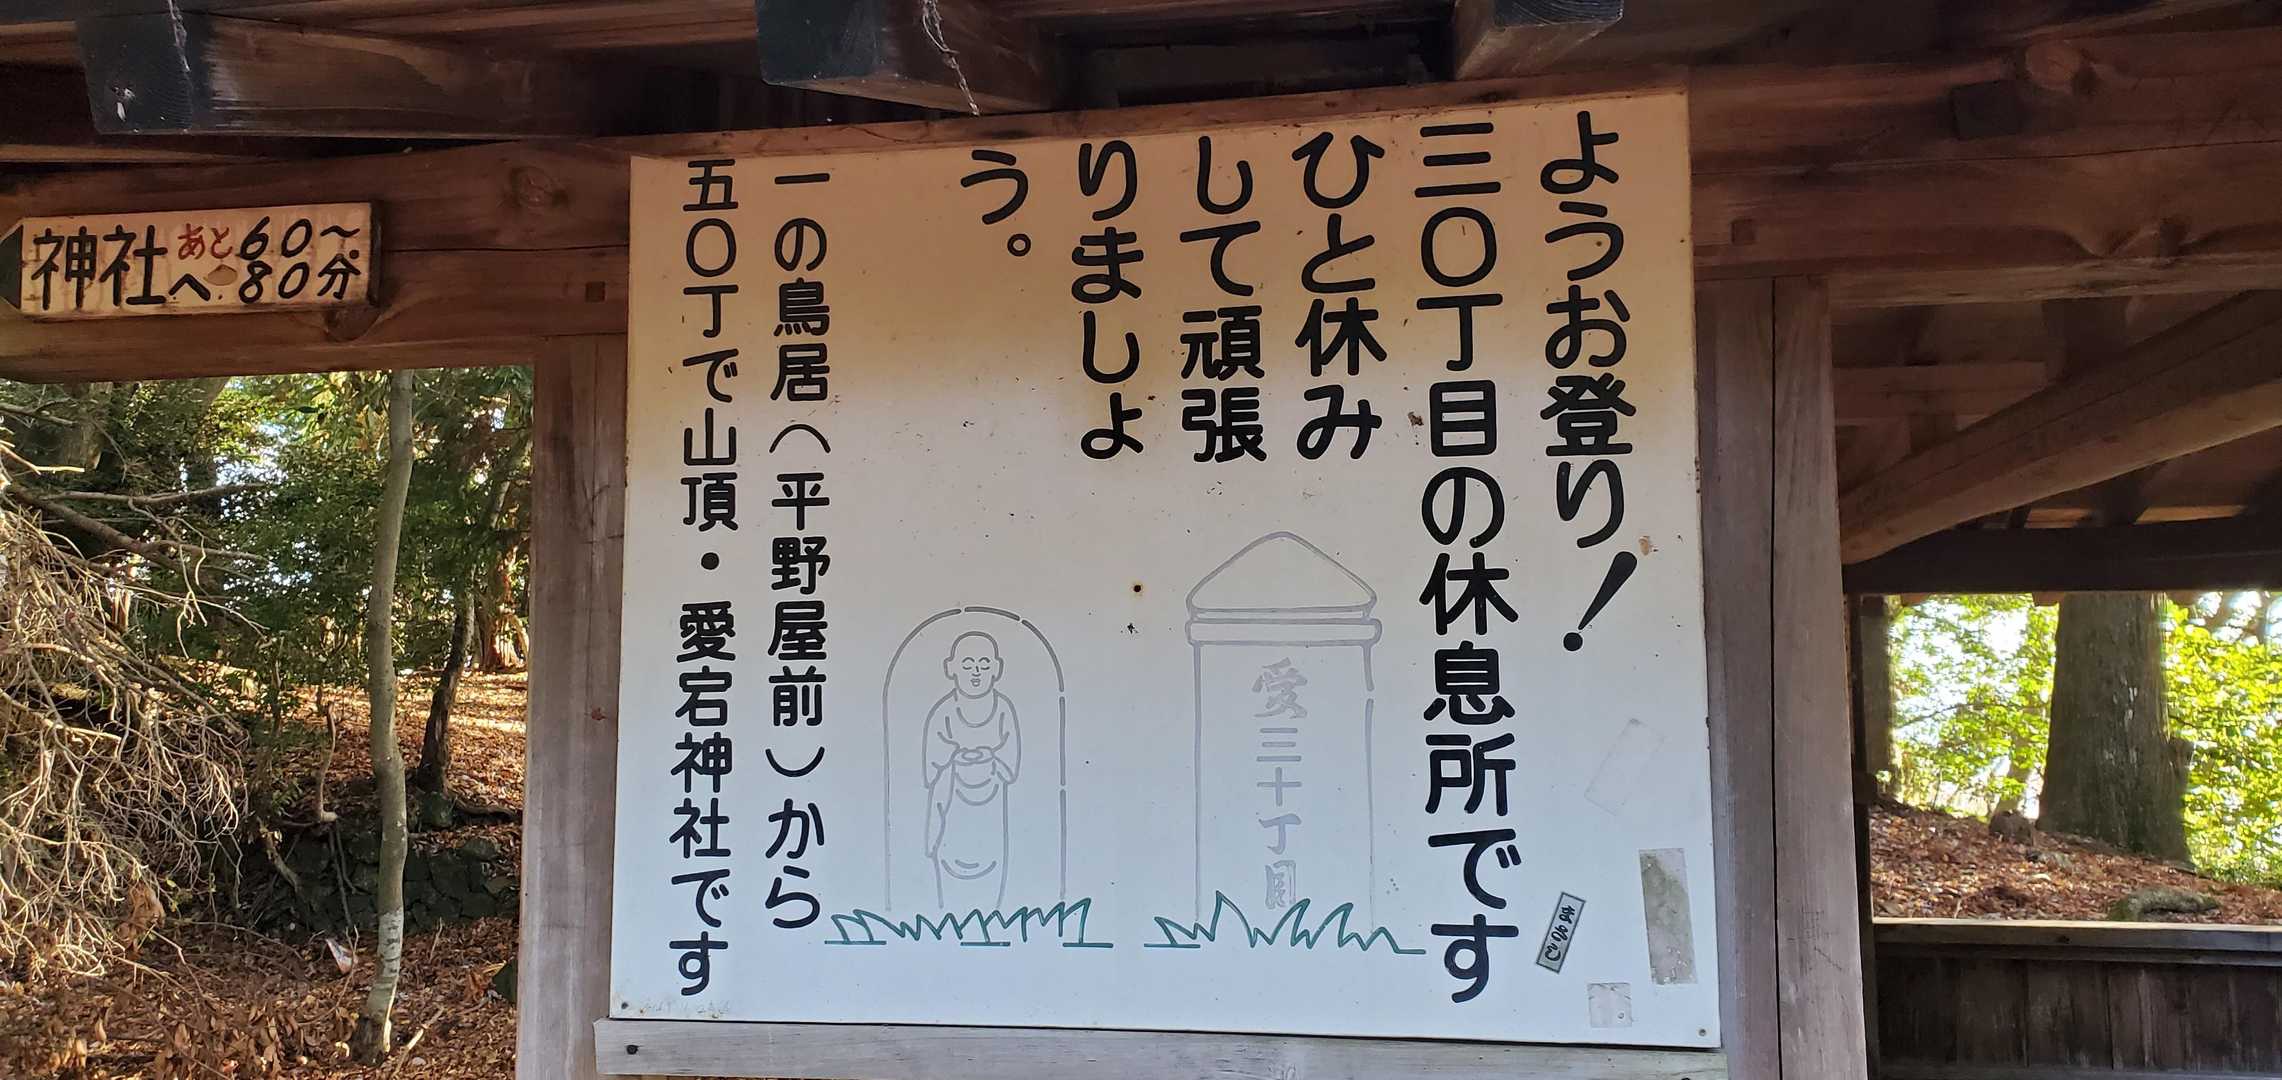 ようお登り!
三〇丁目の休息所です
ひと休み
して頑張
りましょ
う。
一の鳥居(平野屋前)から
五〇丁で山頂・愛宕神社です
愛三十丁目
神社へ
あと
60〜
80分